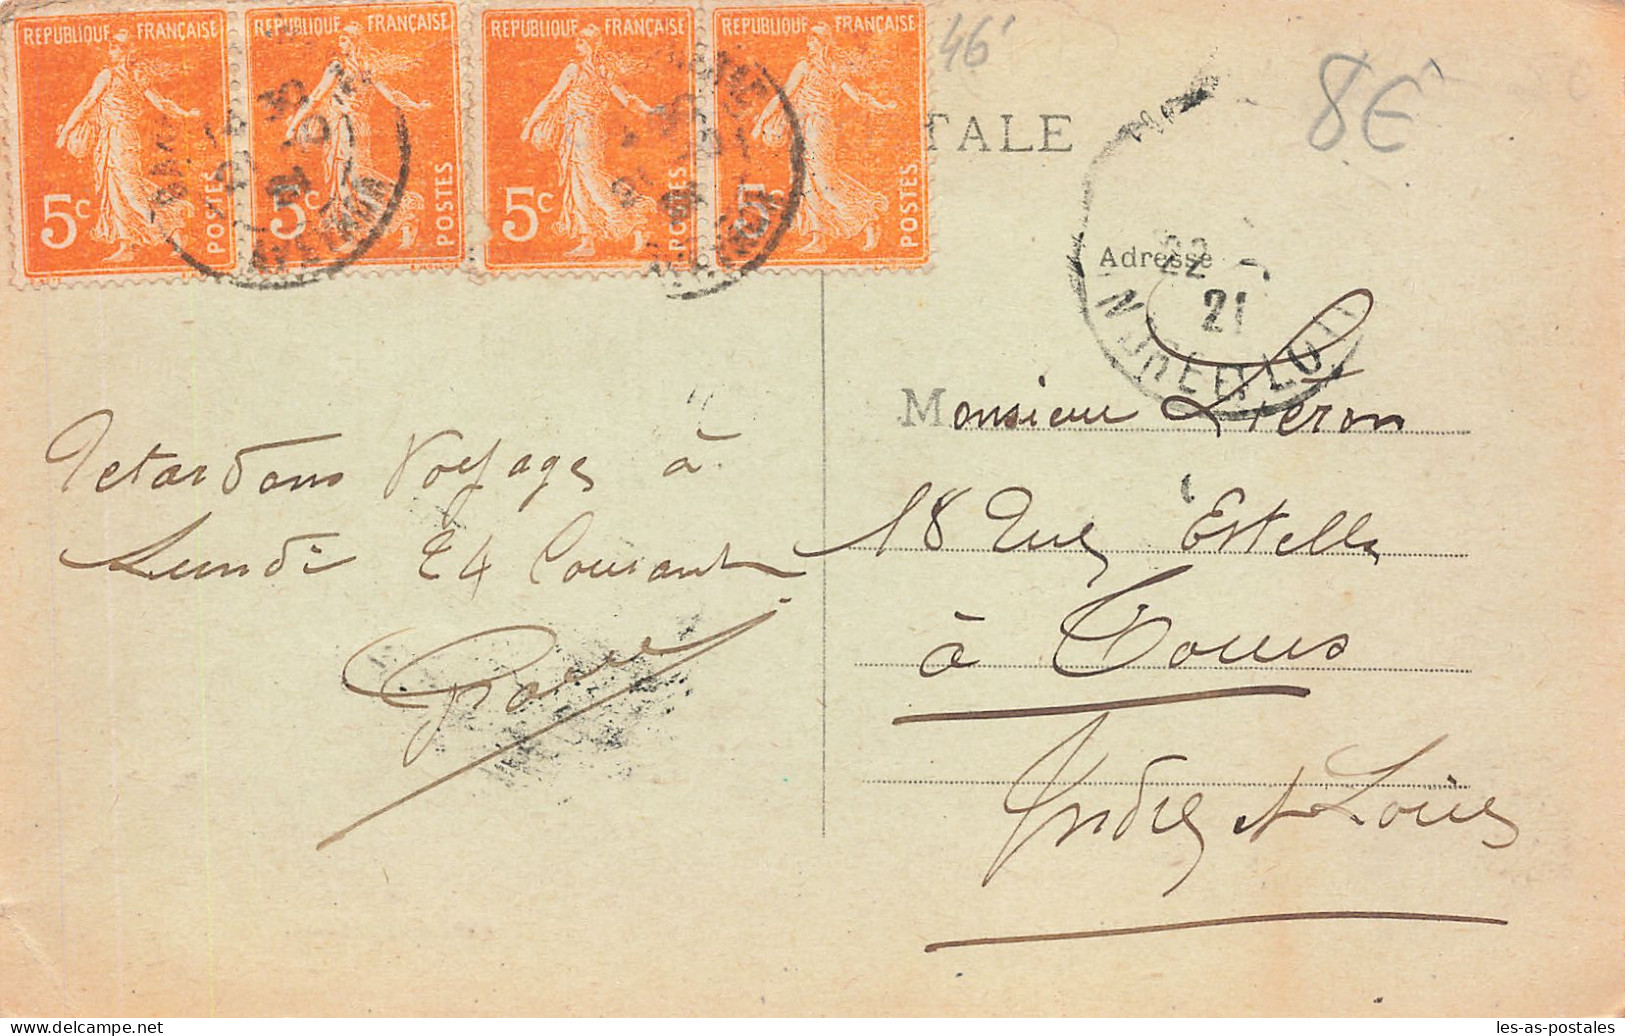 REPUBLIQUE FRANÇAISE REPUBLIQUE FRANÇAISE REPUBLIQUE FRANÇAISE REPUBLIQUE FRANÇAISE
5c POSTES 5c POSTES 5c POSTES 5 POSTES
46
8€
TALE
Adresse
22
21
INDRE-ET-LOI
Retardons Voyage à
Lundi 24 Courant
Monsieur
18 Rue Estelle
à Tours
Indre et Loire
les-as-postales